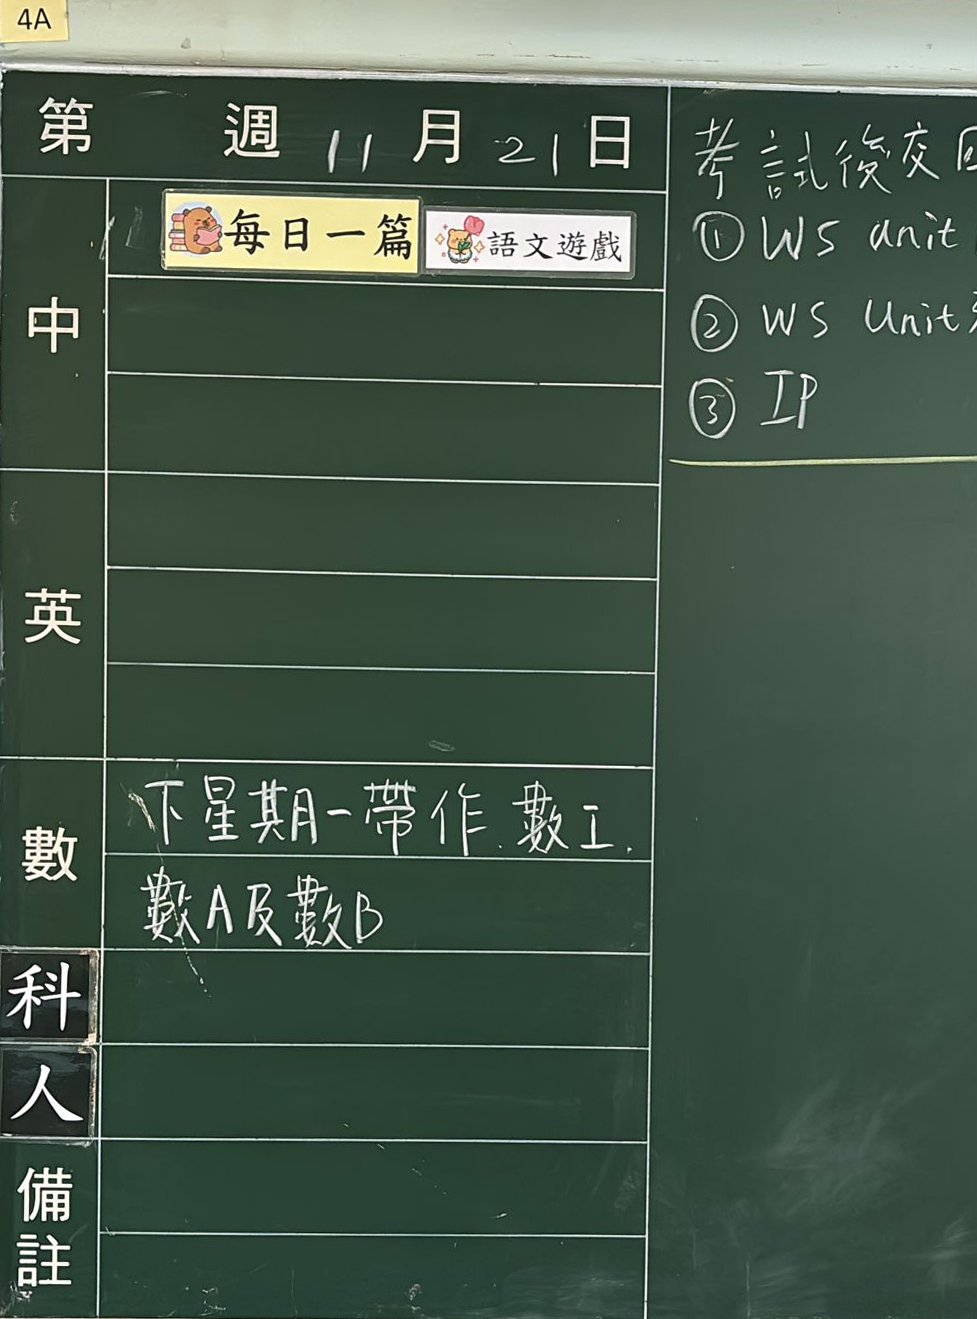 4A
第 週 11月21日
中
每日一篇 語文遊戲
英
數
下星期一帶作.數工.
數A及數B
科
人
備註
考試後交
① WS unit
② WS Unit
③ IP